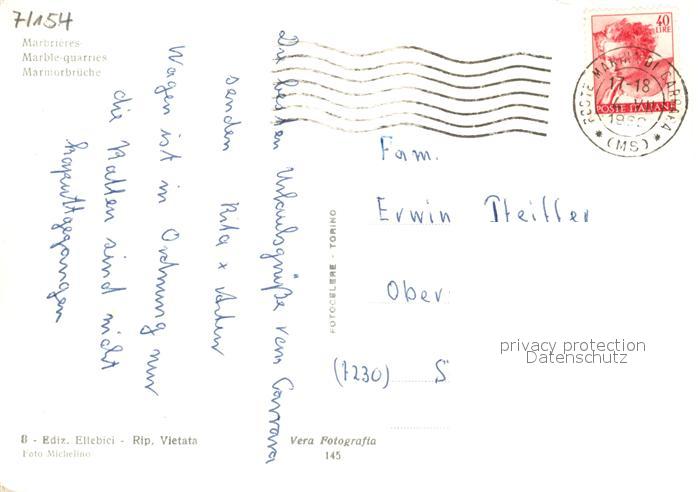 7/154
Marbrières
Marble-quarries
Marmorbrüche
Die besten Urlaubsgrüße von Carrara
senden Rita +
Wagen ist in Ordnung nur
die Platten sind nicht
kaputtgegangen
8 - Ediz. Ellebici - Rip. Vietata
Foto Michelino
Vera Fotografia
145
FOTOCELERE - TORINO
40
LIRE
POSTE ITALIANE
POSTE MARINA DI CARRARA
17-18
(MS)
Fam.
Erwin Pfeiffer
Ober
(7230) S
privacy protection
Datenschutz